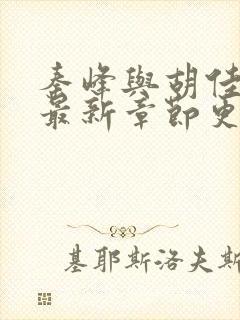 秦峰與胡佳
最新章節更
基耶斯洛夫斯